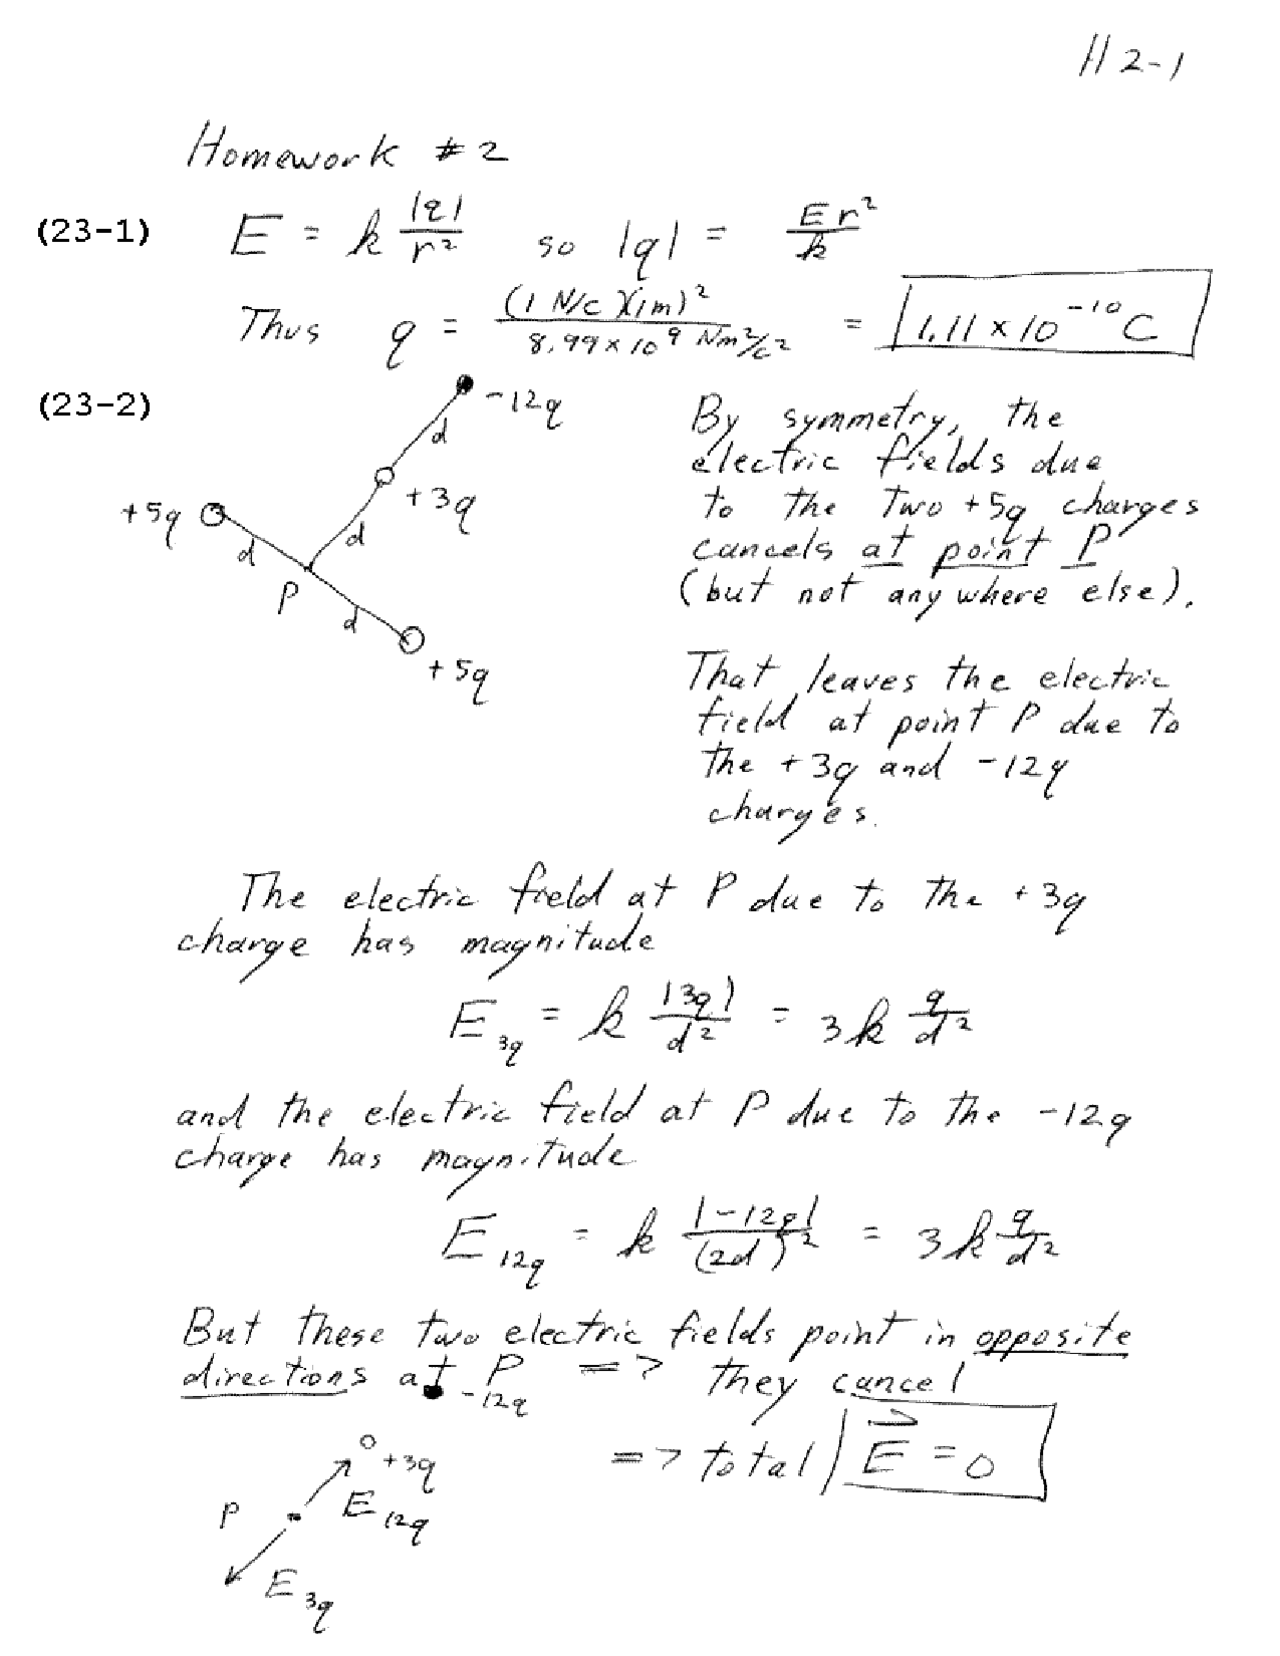 H2-1
Homework #2
(23-1) E = k |q|/r² so |q| = Er²/k
Thus q = (1 N/C)(1m)²/8.99×10⁹ Nm²/C² = 1.11×10⁻¹⁰ C
(23-2)
-12q
d
+3q
d
+5q
d
P
d
+5q
By symmetry, the
electric fields due
to the two +5q charges
cancels at point P
(but not anywhere else).
That leaves the electric
field at point P due to
the +3q and -12q
charges.
The electric field at P due to the +3q
charge has magnitude
E3q = k |3q|/d² = 3k q/d²
and the electric field at P due to the -12q
charge has magnitude
E12q = k |-12q|/(2d)² = 3k q/d²
But these two electric fields point in opposite
directions at P => they cancel
=> total E⃗ = 0
-12q
+3q
E12q
P
E3q